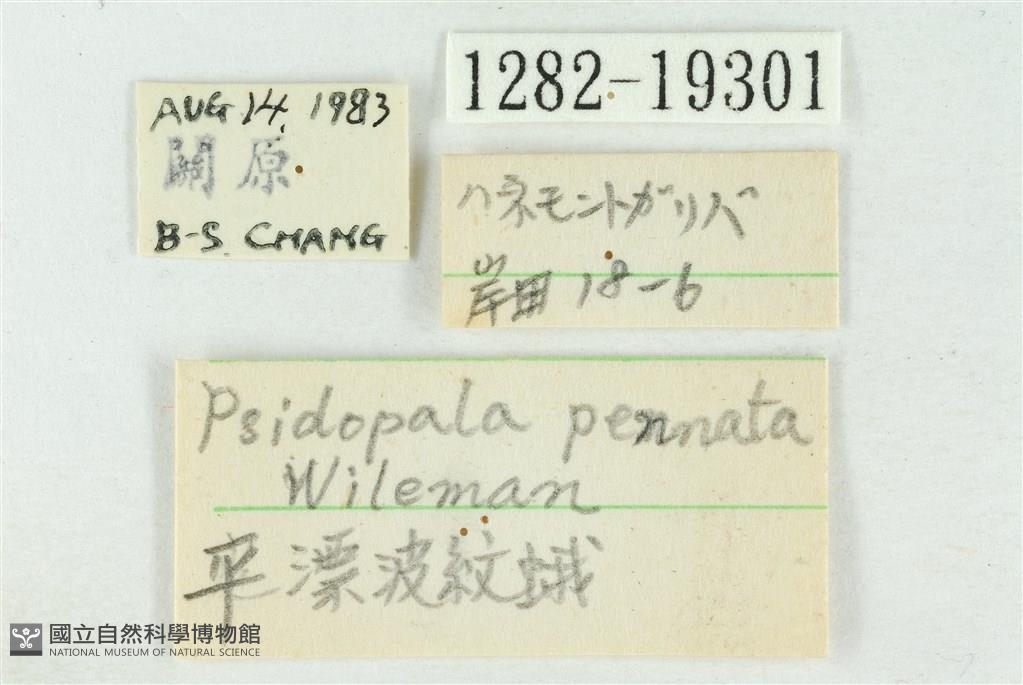 1282-19301
AUG 14, 1983
關原
B-S. CHANG
ハネモントガリバ
岸田 18-6
Psidopala pennata
Wileman
平漂波紋蛾
國立自然科學博物館
NATIONAL MUSEUM OF NATURAL SCIENCE